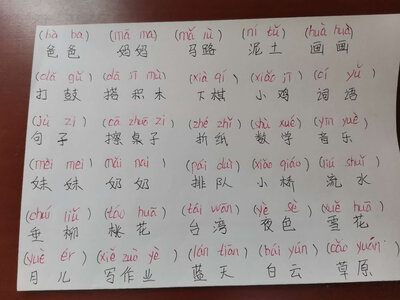 (bà ba) (mā ma) (mǎ lù) (ní tǔ) (huà huà)
爸爸 妈妈 马路 泥土 画画
(dǎ gǔ) (dā jī mù) (xià qí) (xiǎo jī) (cí yǔ)
打鼓 搭积木 下棋 小鸡 词语
(jù zi) (cā zhuō zi) (zhé zhǐ) (shù xué) (yīn yuè)
句子 擦桌子 折纸 数学 音乐
(mèi mei) (nǎi nai) (pái duì) (xiǎo qiáo) (liú shuǐ)
妹妹 奶奶 排队 小桥 流水
(chuí liǔ) (táo huā) (tái wān) (yè sè) (xuě huā)
垂柳 桃花 台湾 夜色 雪花
(yuè ér) (xiě zuò yè) (lán tiān) (bái yún) (cǎo yuán)
月儿 写作业 蓝天 白云 草原